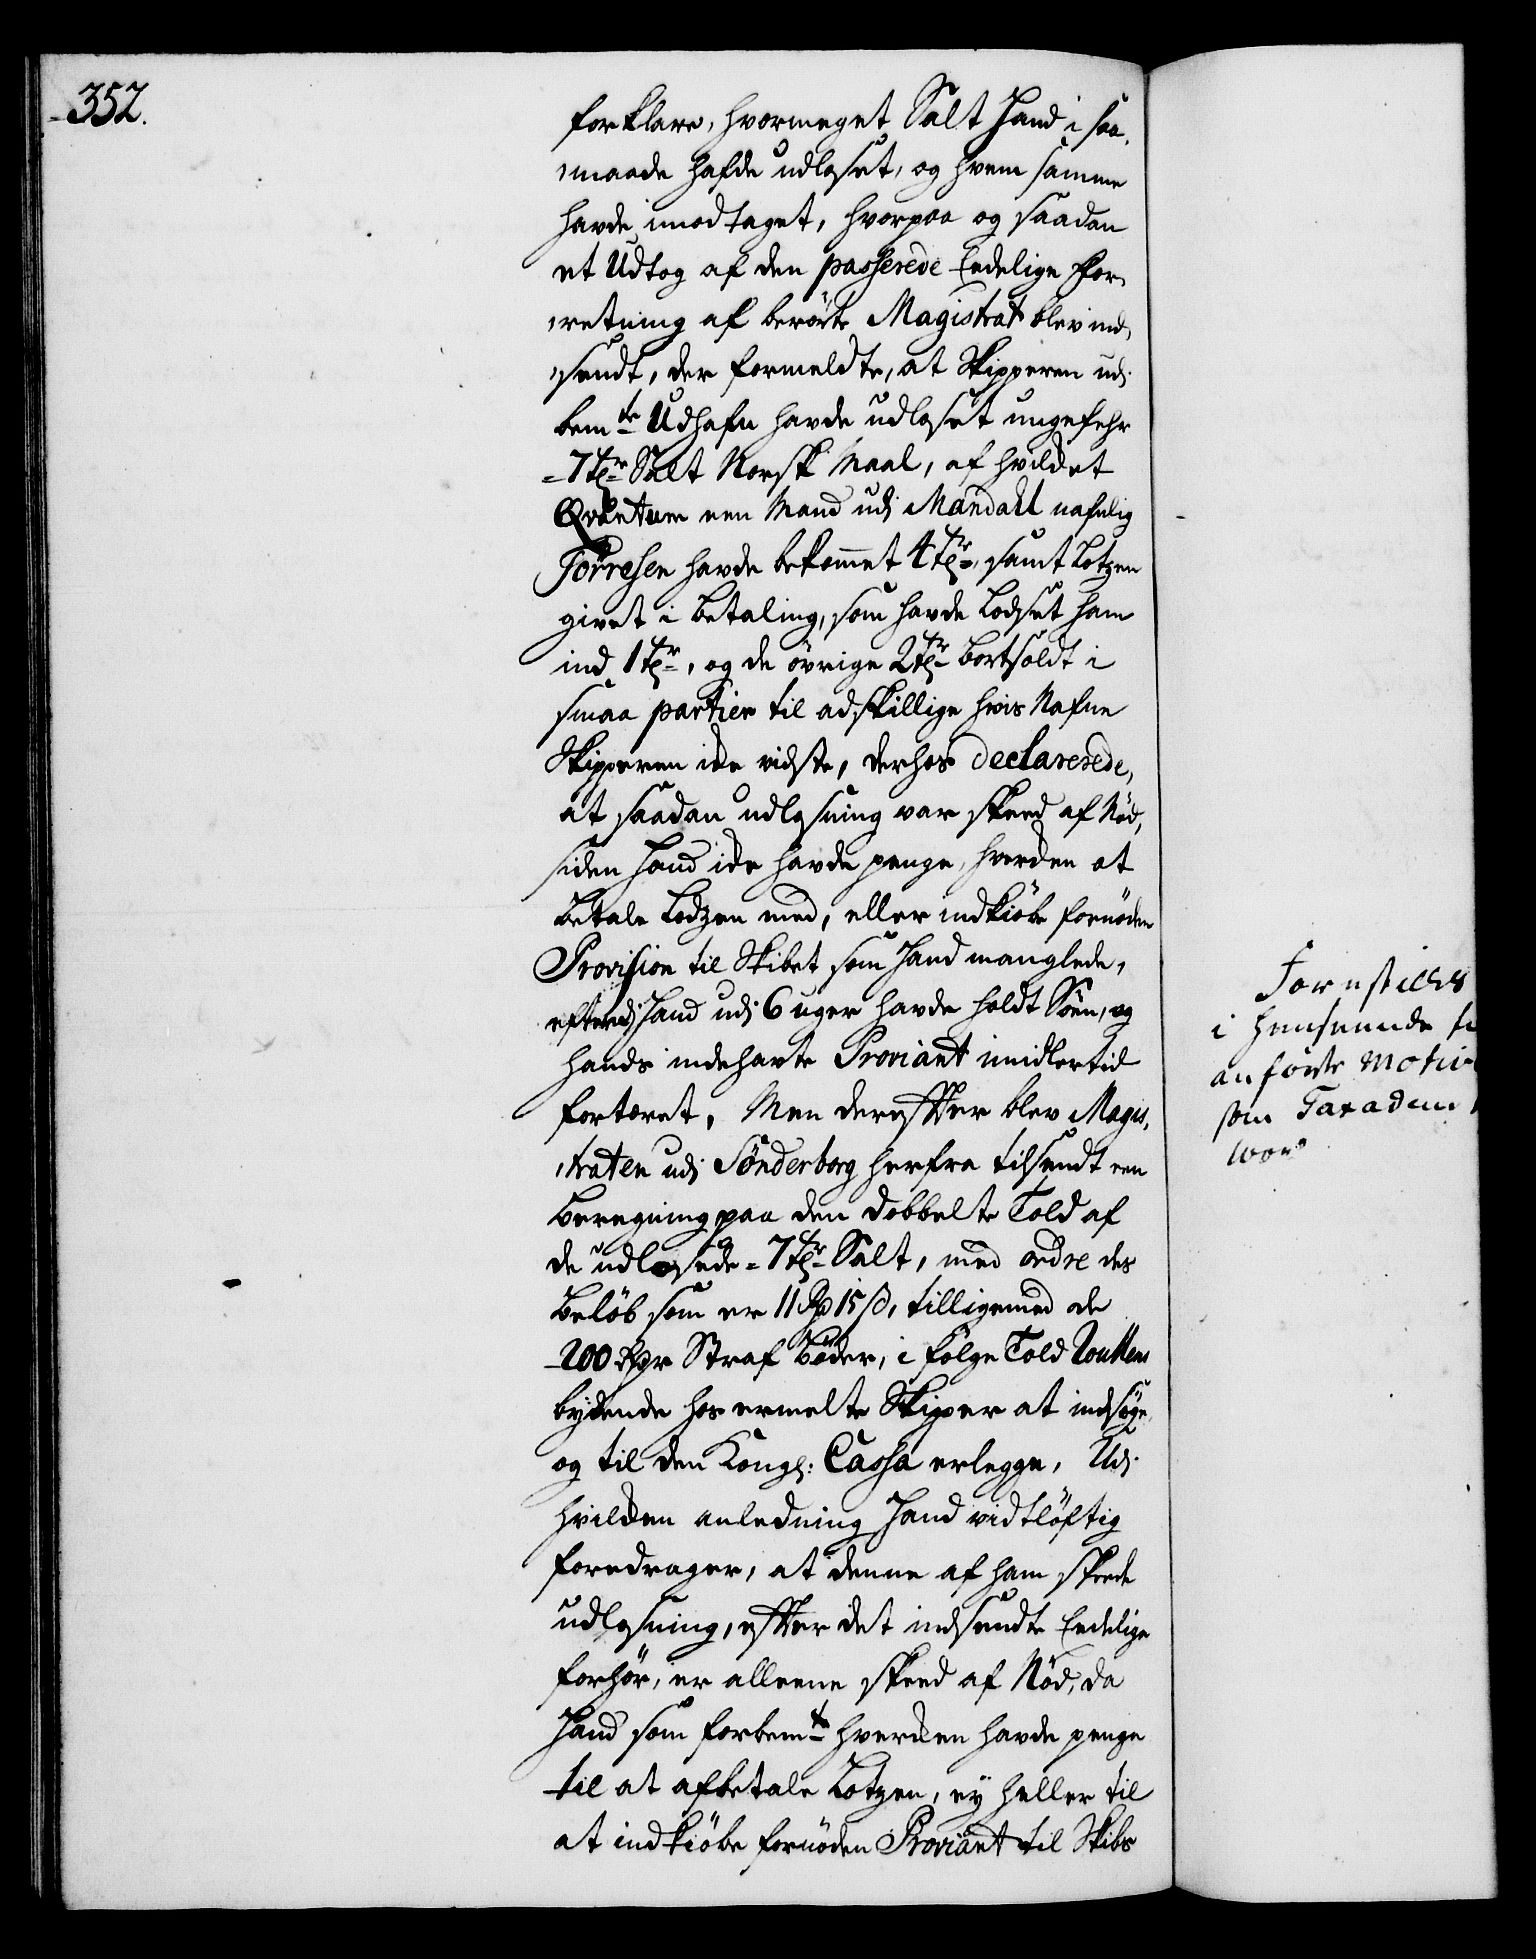 352.
forklare, hvormeget Salt Hand i saa-
maade hafde udloset, og hvem samme
havde imodtaget, hvorpaa og saadan
et Udtog af den passerede Eedelige For-
retning af berörte Magistrat blev ind-
sendt, der formeldte, at Skipperen udj
bemte Udhafn havde udloset ungefehr
7 tdr Salt Norsk Maal, af hvilcket
Qvantum een Mand udj Mandahl nafnlig
Törresen havde bekommet 4 tdr, samt Lotzen
givet i betaling, som havde Lodset ham
ind 1 tdr, og de övrige 2 tdr bortsoldt i
smaa partier til adskillige hvis Nafne
Skipperen icke vidste, derhos declarerede,
at saadan udlosning var skeed af Nöd,
siden Hand icke havde penge, hverden at
betale Lodzen med, eller indkiöbe fornöden
Provision til Skibet som Hand manglede,
efterdj Hand udj 6 uger havde holdt Söen, og
hands indehavte Proviant imidlertid
fortæret, Men derefter blev Magis-
traten udj Sönderborg herfra tilsendt een
Beregning paa den dobbelte Told af
de udlosede 7 tdr Salt, med ordre des
Belöb som er 11 Rd 15 s, tilligemed de
200 Rdr Straf Böder, i fölge Told Roullens
bydende hos ermelte Skipper at indsöge,
og til den Kongl: Cassa erlegge, Udj
hvilcken anledning Hand vidtlöftig
foredrager, at denne af ham skeede
udlosning, efter det indsendte Eedelige
forhör, er alleene skeed af Nöd, da
Hand som forbemte hvercken havde penge
til at afbetale Lotzen, ey heller til
at indkiöbe fornöden Proviant til Skibs
Fornstilles
i henseende
anförte Motiv
som